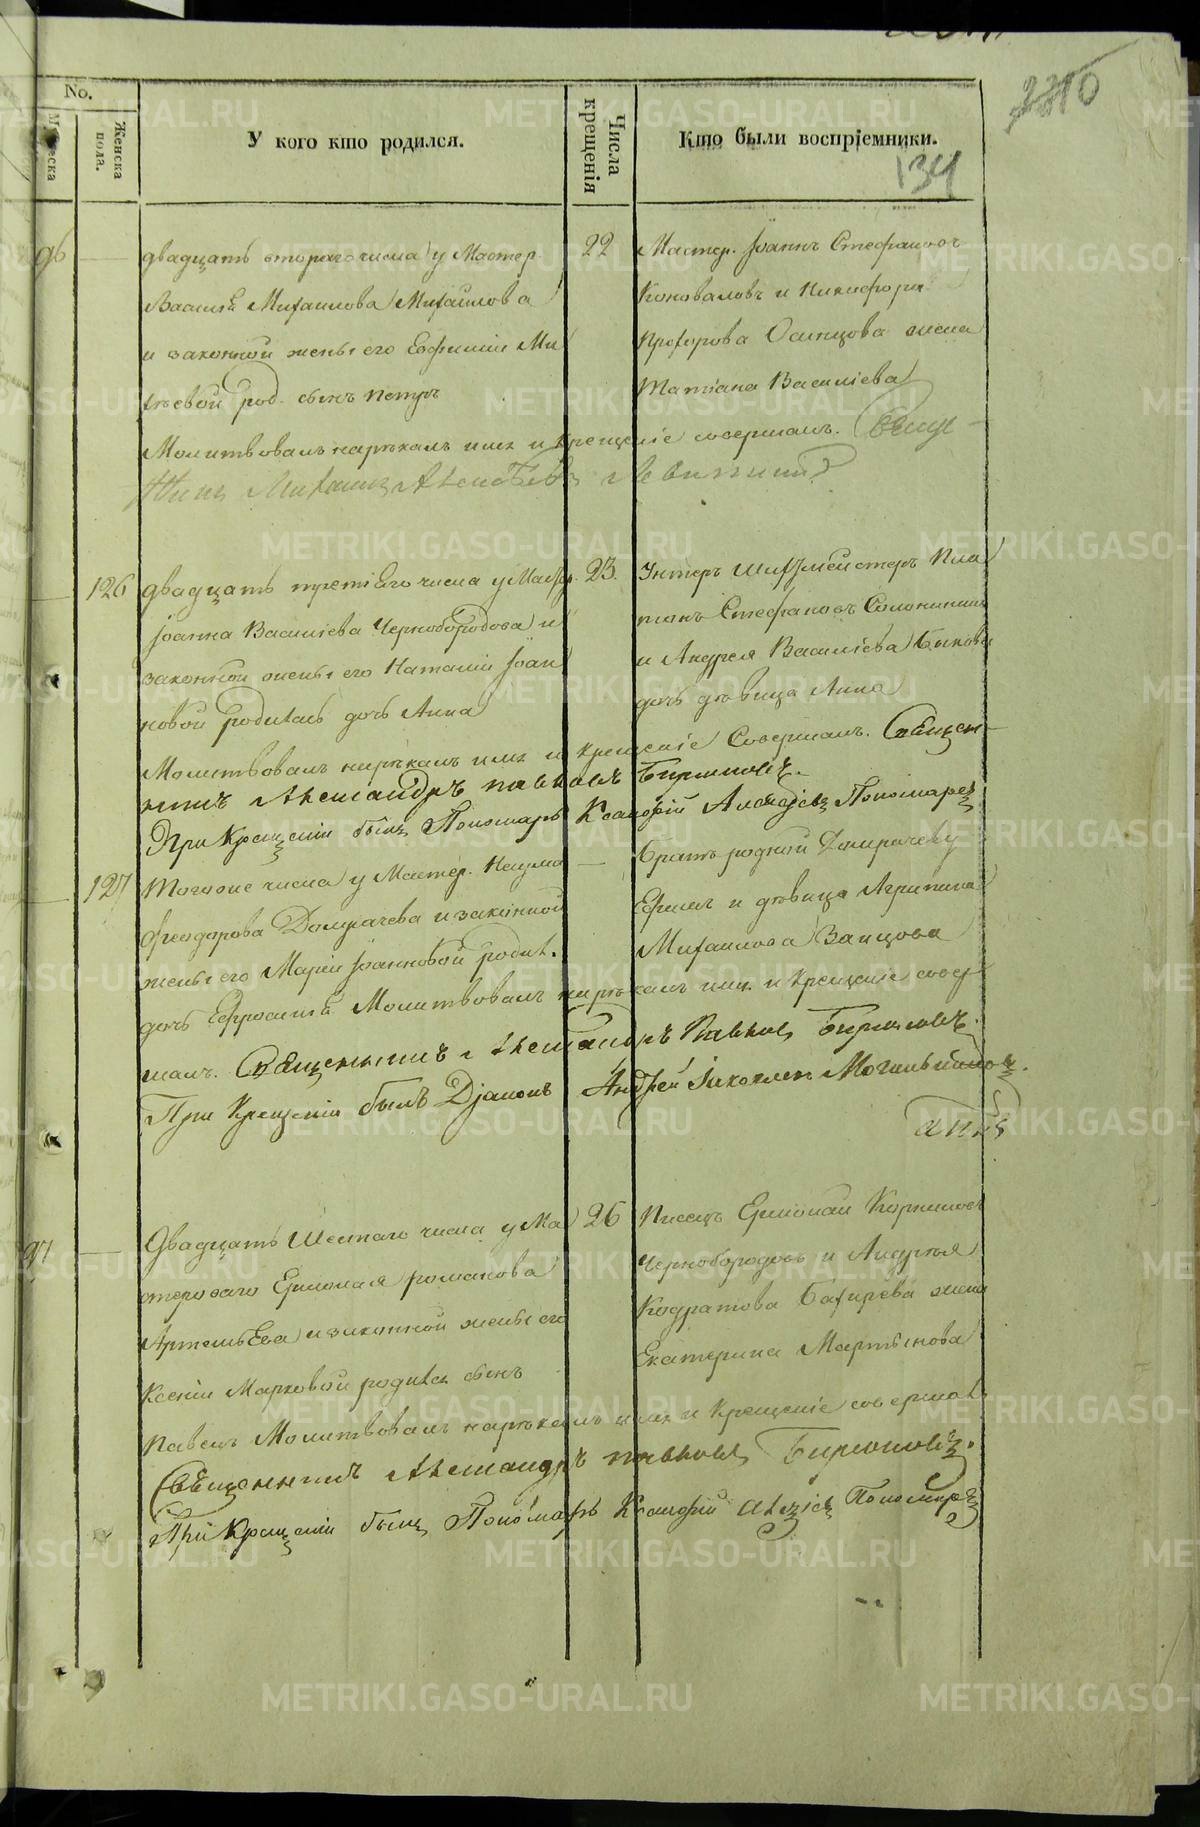 2310
No.
Мужеска
Женска пола.
У кого кто родился.
Числа крещенія
Кто были воспріемники.
134
96
двадцать втораго числа у Мастер.
Василья Михаилова Михаилова
и законной жены его Евфиміи Ми
хѣевой род. сынъ Петръ
22
Мастер. Іоаннъ Стефановъ
Коноваловъ и Никифора
Прохорова Осинцова жена
Татіана Василіева
Молитвовалъ нарѣкалъ имя и крещеніе совершалъ. Свящ-
126
двадцать третіего числа у Мастер.
Іоанна Василіева Чернобородова и
законной жены его Наталіи Іоан
новой родилась дочь Анна
23.
Унтеръ Шихтмейстеръ Пла
тонъ Стефановъ Солонининъ
и Андрея Василіева Быкова
дочь дѣвица Анна
Молитвовалъ нарѣкалъ имя и крещеніе Совершалъ. Священ-
никъ Александръ Павловъ Бирюковъ.
При Крещеніи былъ Пономарь Ксанфій Алексѣевъ Пономаревъ
127
Тогоже числа у Мастер. Наума
Феодорова Домрачева и законной
жены его Маріи Іоанновой родил.
дочь Ефросинья Молитвовалъ нарѣкалъ имя и крещеніе совер
Братъ родной Домрачеву
Ефимъ и дѣвица Агрипина
Михаилова Заицова
шалъ. Священникъ Александръ Павловъ Бирюковъ.
При Крещеніи былъ Діаконъ Андрей Іаковлевъ Могильниковъ.
97
Двадцать Шестаго числа у Ма
стероваго Ермолая Романова
Артемьева и законной жены его
Ксеніи Марковой родился сынъ
26
Писецъ Ермолай Корниловъ
Чернобородовъ и Андрея
Кодратова Бахирева жена
Екатерина Мартынова
Павелъ Молитвовалъ нарѣкалъ имя и крещеніе совершалъ
Священникъ Александръ Павловъ Бирюковъ.
При Крещеніи былъ Пономарь Ксанфій Пономаревъ
METRIKI.GASO-URAL.RU